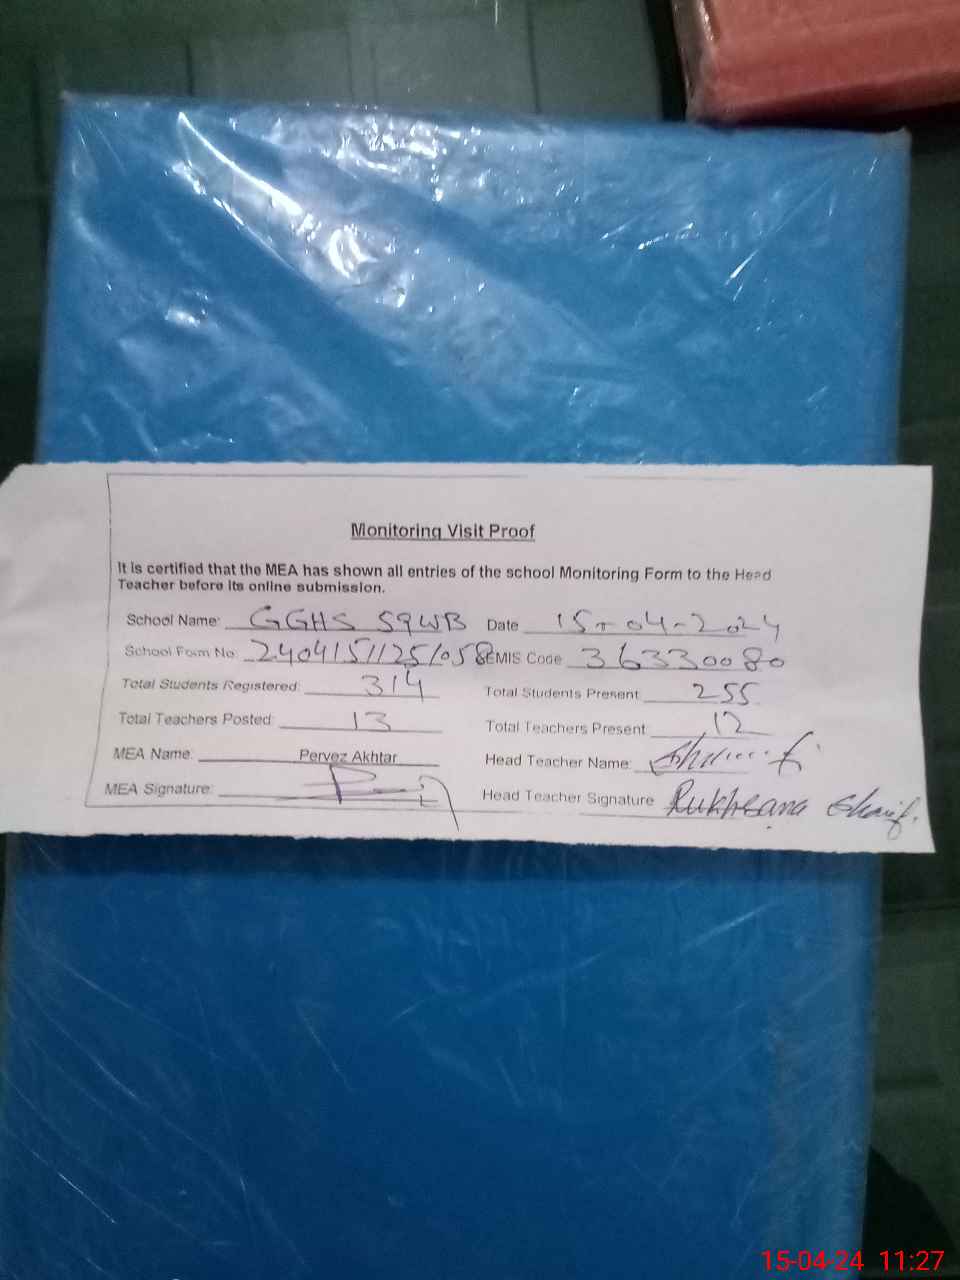 Monitoring Visit Proof
It is certified that the MEA has shown all entries of the school Monitoring Form to the Head
Teacher before its online submission.
School Name: GGHS 59WB Date 15-04-2024
School Form No: 24041511251058 EMIS Code 36330080
Total Students Registered: 314 Total Students Present 255
Total Teachers Posted: 13 Total Teachers Present 12
MEA Name: Pervez Akhtar Head Teacher Name:
MEA Signature: Head Teacher Signature Rukhsana Sharif.
15-04-24 11:27